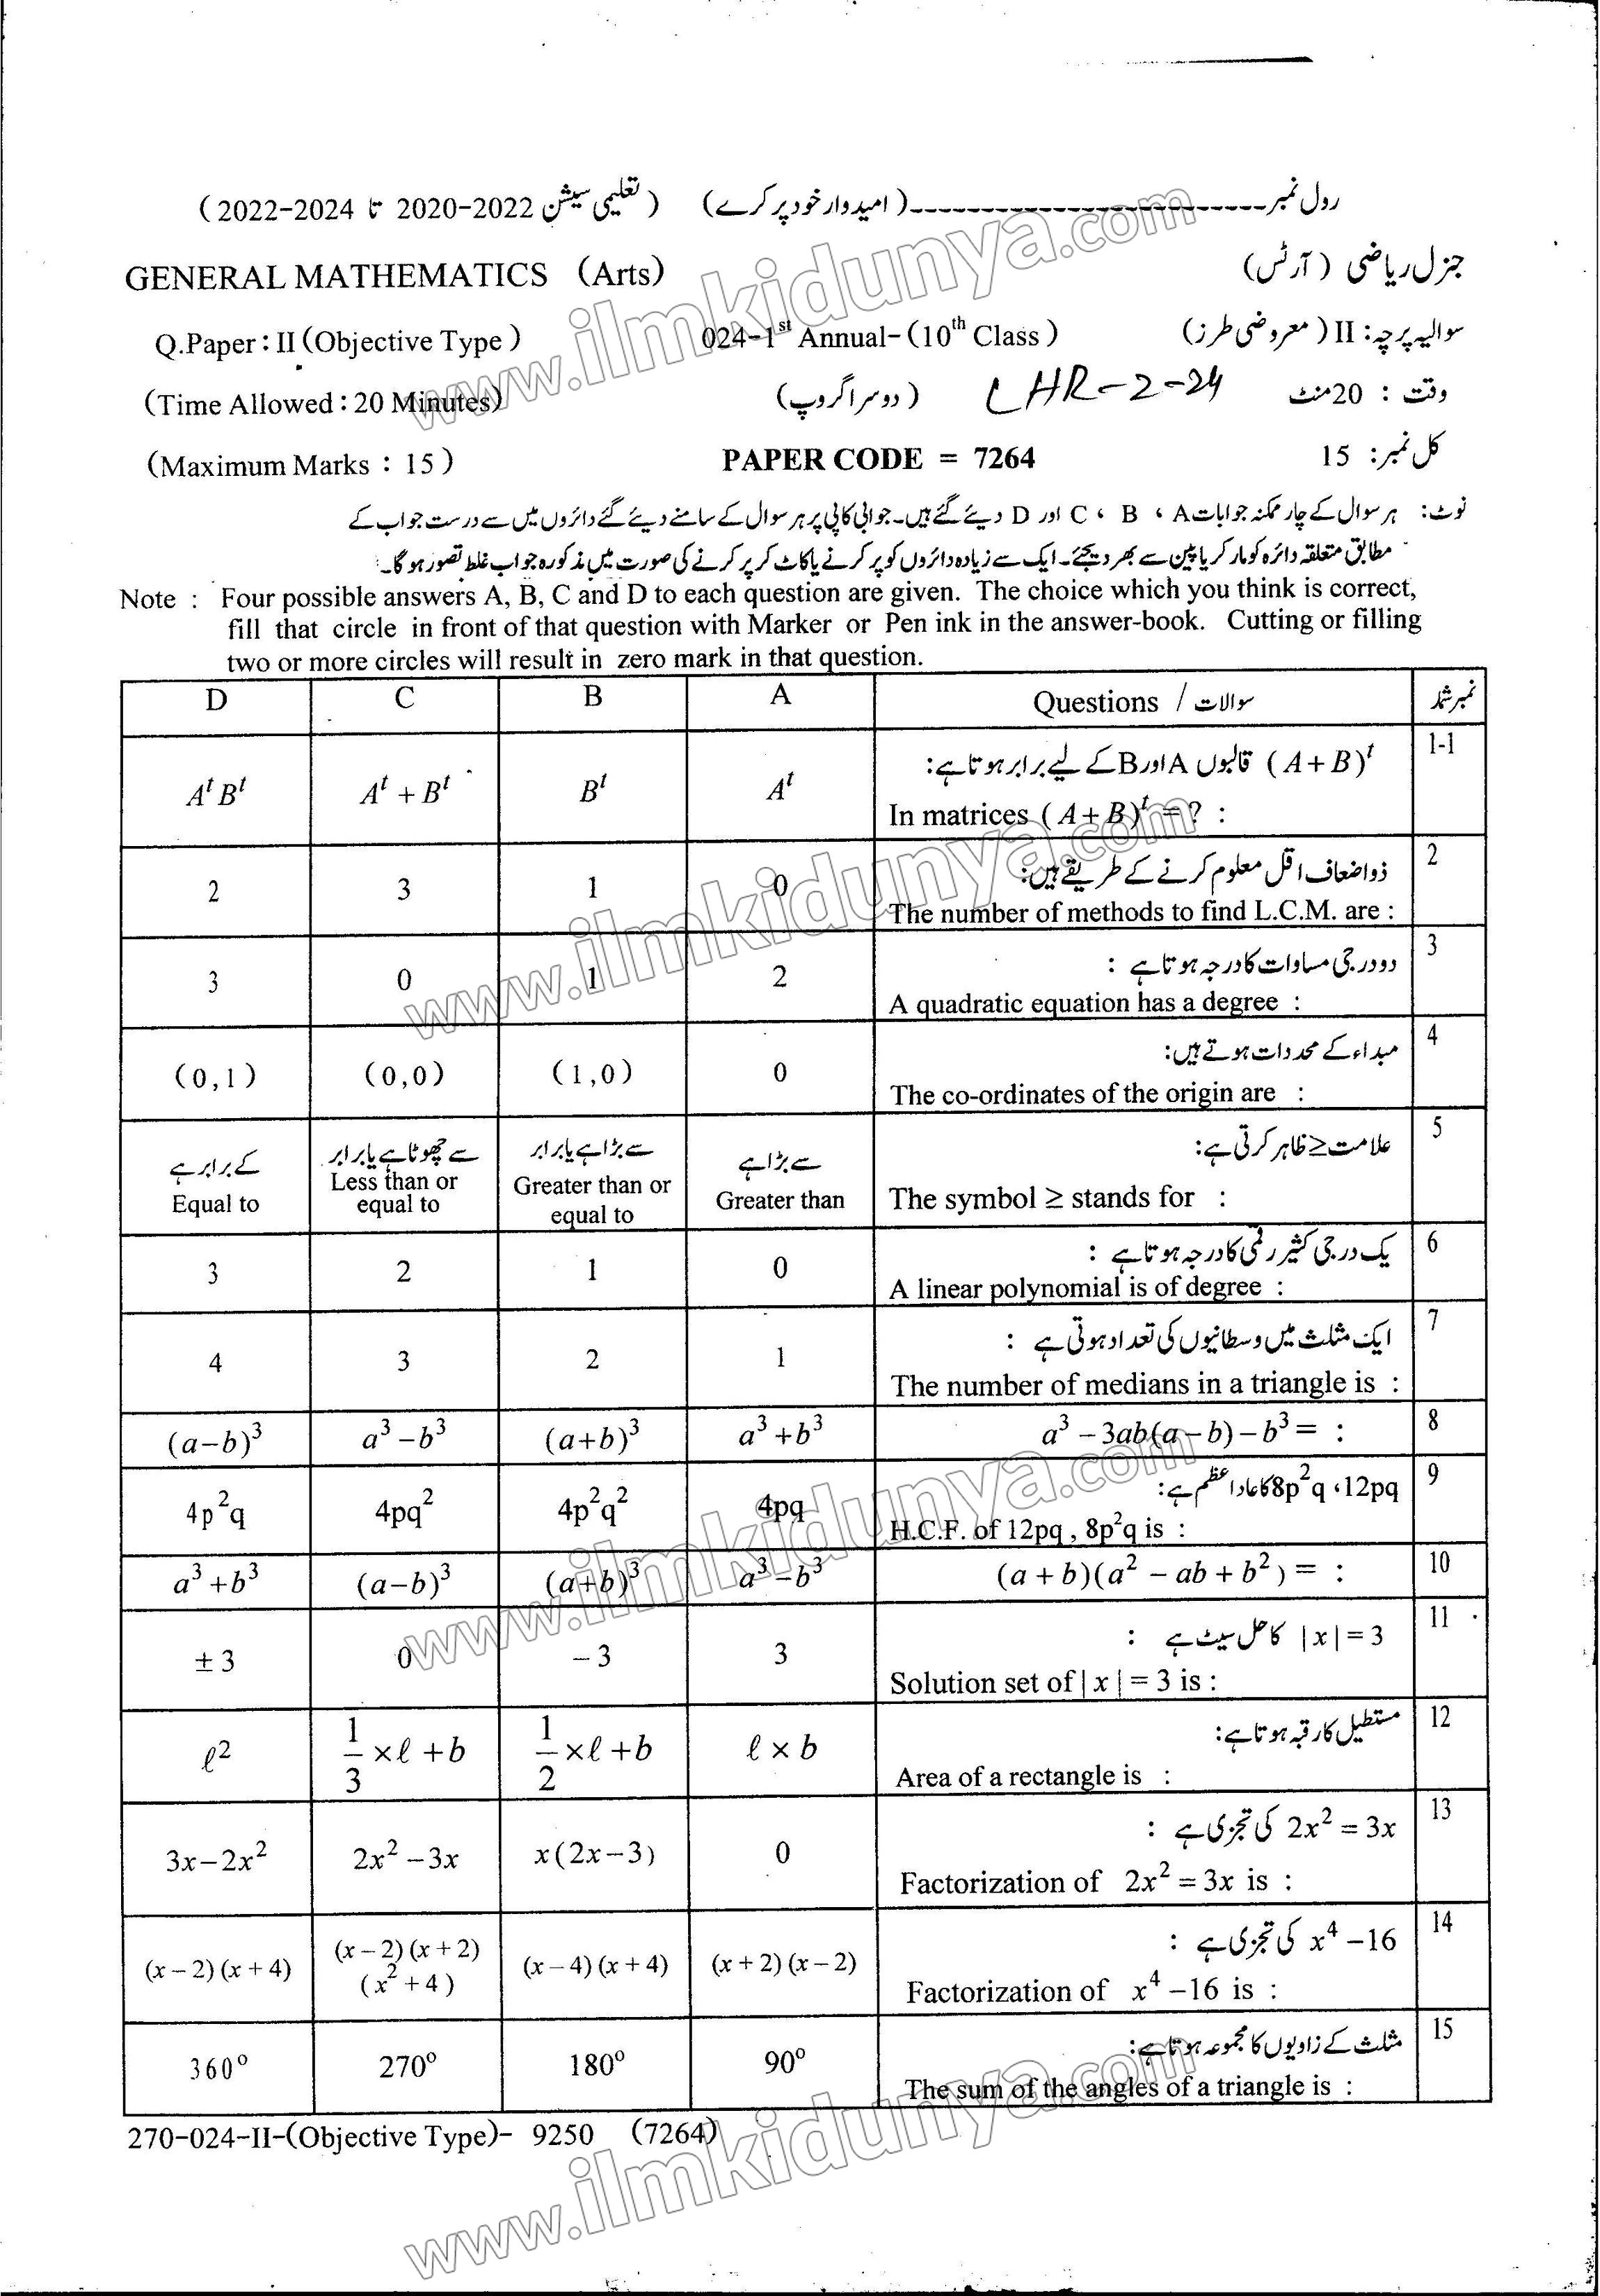 رول نمبر ------------------------- (امیدوار خود پر کرے) (تعلیمی سیشن 2022-2020 تا 2024-2022)
GENERAL MATHEMATICS (Arts) جنرل ریاضی (آرٹس)
Q.Paper : II (Objective Type) 024-1st Annual-(10th Class) سوالیہ پرچہ: II (معروضی طرز)
(Time Allowed : 20 Minutes) (دوسرا گروپ) LHR-2-24 وقت : 20 منٹ
(Maximum Marks : 15) PAPER CODE = 7264 کل نمبر: 15
نوٹ: ہر سوال کے چار ممکنہ جوابات A ، B ، C اور D دیئے گئے ہیں۔ جوابی کاپی پر ہر سوال کے سامنے دیئے گئے دائروں میں سے درست جواب کے
مطابق متعلقہ دائرہ کو مارکر یا پین سے بھر دیجئے۔ ایک سے زیادہ دائروں کو پر کرنے یا کاٹ کر پر کرنے کی صورت میں مذکورہ جواب غلط تصور ہوگا۔
Note : Four possible answers A, B, C and D to each question are given. The choice which you think is correct,
fill that circle in front of that question with Marker or Pen ink in the answer-book. Cutting or filling
two or more circles will result in zero mark in that question.
D C B A Questions / سوالات نمبر شمار
1-1 (A+B)^t قالبوں A اور B کے لیے برابر ہوتا ہے:
A^t B^t A^t + B^t B^t A^t In matrices (A+B)^t = ? :
2 ذواضعاف اقل معلوم کرنے کے طریقے ہیں:
2 3 1 0 The number of methods to find L.C.M. are :
3 دو درجی مساوات کا درجہ ہوتا ہے :
3 0 1 2 A quadratic equation has a degree :
4 مبداء کے محددات ہوتے ہیں:
(0,1) (0,0) (1,0) 0 The co-ordinates of the origin are :
5 علامت ≥ ظاہر کرتی ہے:
کے برابر ہے سے چھوٹا ہے یا برابر سے بڑا ہے یا برابر سے بڑا ہے
Equal to Less than or equal to Greater than or equal to Greater than The symbol ≥ stands for :
6 یک درجی کثیر رقمی کا درجہ ہوتا ہے :
3 2 1 0 A linear polynomial is of degree :
7 ایک مثلث میں وسطانیوں کی تعداد ہوتی ہے :
4 3 2 1 The number of medians in a triangle is :
(a-b)³ a³-b³ (a+b)³ a³+b³ a³ - 3ab(a-b) - b³ = : 8
9 12pq، 8p²q کا عاد اعظم ہے:
4p²q 4pq² 4p²q² 4pq H.C.F. of 12pq , 8p²q is :
a³+b³ (a-b)³ (a+b)³ a³-b³ (a+b)(a² - ab + b²) = : 10
11 |x| = 3 کا حل سیٹ ہے :
± 3 0 - 3 3 Solution set of |x| = 3 is :
12 مستطیل کا رقبہ ہوتا ہے:
ℓ² 1/3 ×ℓ+b 1/2 ×ℓ+b ℓ × b Area of a rectangle is :
13 2x² = 3x کی تجزی ہے :
3x-2x² 2x²-3x x(2x-3) 0 Factorization of 2x² = 3x is :
14 x⁴-16 کی تجزی ہے :
(x-2)(x+4) (x-2)(x+2) (x²+4) (x-4)(x+4) (x+2)(x-2) Factorization of x⁴-16 is :
15 مثلث کے زاویوں کا مجموعہ ہوتا ہے:
360° 270° 180° 90° The sum of the angles of a triangle is :
270-024-II-(Objective Type)- 9250 (7264)
www.ilmkidunya.com
www.ilmkidunya.com
www.ilmkidunya.com
www.ilmkidunya.com